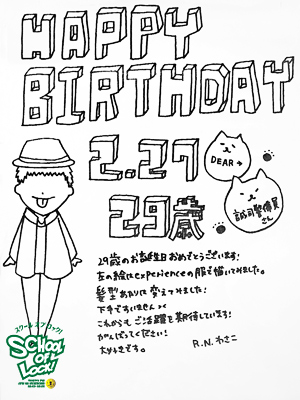 HAPPY
BIRTHDAY
2.27
29歳
DEAR→
さん
29歳のお誕生日おめでとうございます!
左の絵はexperienceの服で描いてみました。
髪型あたりは変えてみました!
下手ですいません ><
これからもご活躍を期待しています!
がんばってください!
大好きです。
R.N.わさこ
スクールオブロック!
SCHOOL
OF
LOCK!